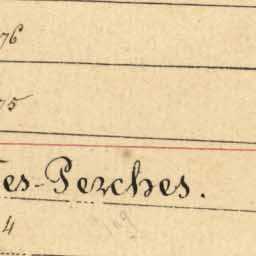 76
75
es-Perches.
4